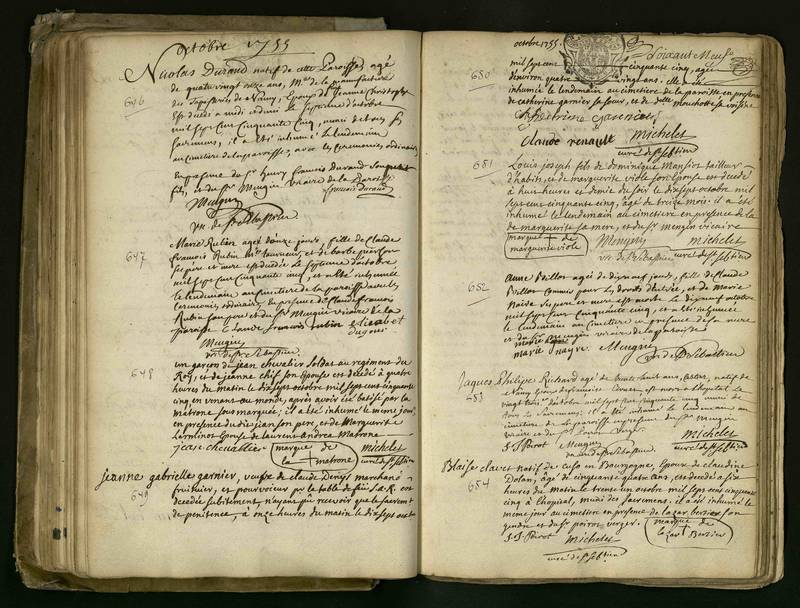 octobre 1755
Nicolas Durand natif de cette Paroisse agé
de quatre vingt onze ans, Mtre de la manufacture
des Tapisseries a Nancy, Epoux de Jeanne Christophe
Est decedé a midi le septieme d'octobre
646
mil sept cent Cinquante Cinq, muni de tous les
sacremens, il a eté inhumé le lendemain
au cimetiere de la paroisse, avec les ceremonies ordinaires
En presence de Sr henry francois Durand
fils, et du Sr Mengin vicaire de la Paroisse
francois Durand
Mengin
vic. de St Sebastien
Marie Rubin agée d'onze jours, fille de Claude
647
francois Rubin et de barbe
ses pere et mere est decedée le septieme d'octobre
mil sept cent Cinquante cinq, et a été inhumée
le lendemain au cimetiere de la paroisse avec les
ceremonies ordinaires, En presence de Claude francois
Rubin son pere et du Sr Mengin vicaire de la
paroisse Claude francois rubin elisabet
Mengin
vic. de St Sebastien
648
un garçon de jean chevalier soldat au regiment du
Roy, et de jeanne chif son Epouse est decedé a quatre
heures du matin le dix sept octobre mil sept cent cinquante
cinq en venant au monde, aprés avoir eté batisé par la
matrone sous marquée; il a eté inhumé le meme jour
en presence du dit jean son pere, et de Marguerite
Epouse de laurens andrea Matrone
jean chevallier marque de la + matrone michelet
curé de St Sebtien
jeanne gabrielle garnier, veufve de claude Denys marchand
649
fruitier, et pourvoieur par la table de feüe S.A.R. est
decedée subitement, n'ayant pû recevoir que le sacrement
de penitence, à onze heures du matin le dix sept octob
octobre 1755.
Soixante Neuf
650
mil sept cent cinquante cinq, agée
d'environ quatre vingt ans. elle a eté
inhumée le lendemain au cimetiere de la paroisse en presence
de catherine garnier sa sœur, et de delle mouchotte sa voisine
Catherine garnier
claude renault michelet
curé de St Sebtien
651
Louis joseph fils de dominique Mansion tailleur
d'habits, et de marguerite viole son Epouse est decedé
a huit heures et demie du soir le dix sept octobre mil
sept cent cinquante cinq, âgé de treize mois. il a eté
inhumé le lendemain au cimetiere en presence de la
de marguerite sa mere, et du Sr mengin vicaire
marque + de marguerite viole Mengin michelet
vic. de St Sebastien curé de St Sebtien
652
Anne Villon agée de dix neuf jours, fille de Claude
Villon Commis pour les droits d'Entrée, et de Marie
Naire ses pere et mere est morte le dix neuf octobre
mil sept cent Cinquante cinq, et a eté inhumée
le lendemain au Cimetiere en presence de sa mere
et du Sr mengin vicaire de la paroisse
marie nayre. Mengin
vic. de St Sebastien
Jaques Philipe Richard agé de trente huit ans, natif de
653
Nancy
vingt trois d'octobre mil sept cent cinquante cinq muni de
tous les Sacremens; il a eté inhumé le lendemain au
cimetiere de la Paroisse en presence du Sr mengin
vicaire et du Sr
J. S. Poirot Mengin michelet
vic. de St Sebastien curé de St Sebtien
Blaise clavet natif de cuso en Bourgogne, Epoux de claudine
654
Dolan, âgé de cinquante quatre ans, est decedé a six
heures du matin le trente un octobre mil sept cent cinquante
cinq à l'hopital, muni des sacremens, il a eté inhumé le
meme jour au cimetiere en presence de lazar bersier son
gendre et du Sr poirot verger.
J. S. Poirot michelet marque de lazar + Bersier
curé de St Sebtien